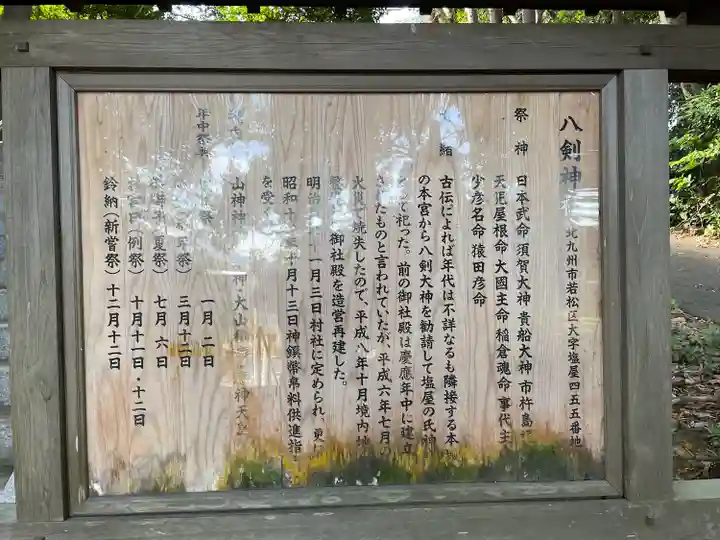 八剣神
北九州市若松区大字塩屋四五五番地
祭神 日本武命 須賀大神 貴船大神 市杵島
天児屋根命 大國主命 稲倉魂命 事代主
少彦名命 猿田彦命
緒 古伝によれば年代は不詳なるも隣接する本
の本宮から八剣大神を勧請して塩屋の氏神
祀った。前の御社殿は慶應年中に建立
されたものと言われていたが、平成六年七月
火災で焼失したので、平成八年十月境内
御社殿を造営再建した。
明治 十一月三日村社に定められ、更に
昭和十 年十月十三日神饌幣帛料供進指
を受
山神神 神・大山 神天
年中祭典 祭 一月二日
年祭) 三月十二日
夏祭) 七月六日
(例祭) 十月十一日・十二日
鈴納(新嘗祭) 十二月十二日